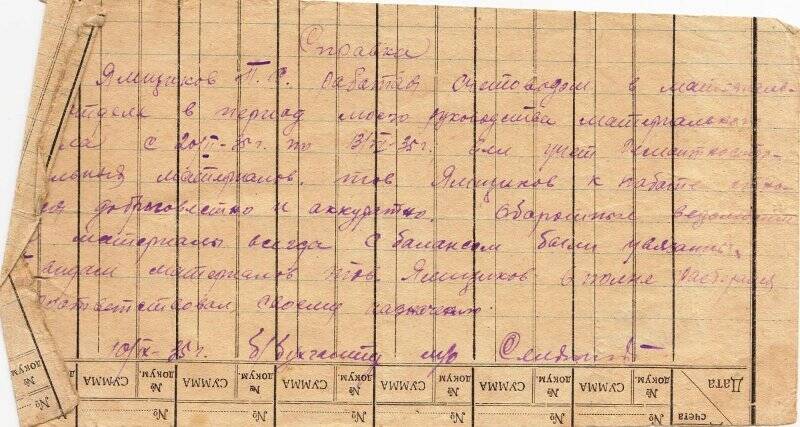 Справка
Ямщиков П. С. работая счетоводом в материаль-
отделе в период моего руководства материального
с 20/II-35г. по 13/VI-35г. вел учет Ремонтностро-
льных материалов. тов. Ямщиков к работе отно-
ся добросовестно и аккуратно. Оборотные ведомости
материалы всегда с балансом были увязаны,
материалов тов Ямщиков вполне
соответствовал своему назначению.
10/IX-35г. б/бухгалтер м/о
№ докум. СУММА № докум. СУММА № докум. СУММА № докум. СУММА № докум. СУММА № докум. СУММА № докум. Дата
№ № № № № № счета